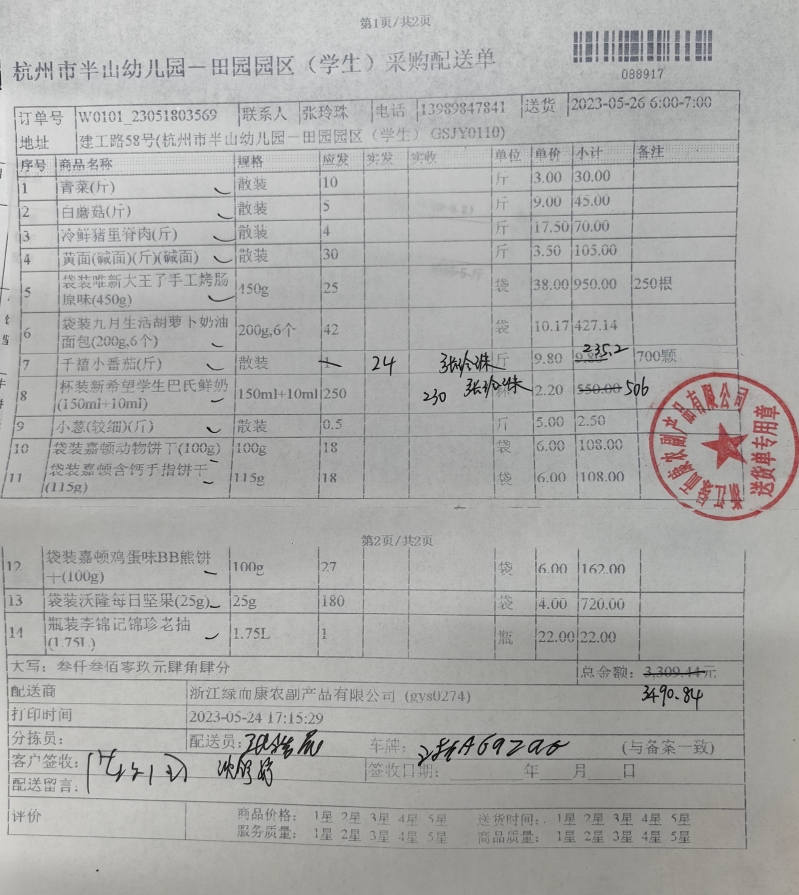 第1页/共2页
杭州市半山幼儿园一田园园区（学生）采购配送单
088917
订单号 W0101_23051803569 联系人 张玲珠 电话 13989847841 送货 2023-05-26 6:00-7:00
地址 建工路58号(杭州市半山幼儿园一田园园区（学生）GSJY0110)
序号 商品名称 规格 应发 实发 实收 单位 单价 小计 备注
1 青菜(斤) 散装 10 斤 3.00 30.00
2 白蘑菇(斤) 散装 5 斤 9.00 45.00
3 冷鲜猪里脊肉(斤) 散装 4 斤 17.50 70.00
4 黄面(碱面)(斤)(碱面) 散装 30 斤 3.50 105.00
5 袋装唯新大王了手工烤肠原味(450g) 450g 25 袋 38.00 950.00 250根
6 袋装九月生活胡萝卜奶油面包(200g,6个) 200g,6个 42 袋 10.17 427.14
7 千禧小番茄(斤) 散装 1 24 张玲珠 斤 9.80 9.80 235.2 700颗
8 杯装新希望学生巴氏鲜奶(150ml+10ml) 150ml+10ml 250 230 张玲珠 杯 2.20 550.00 506
9 小葱(较细)(斤) 散装 0.5 斤 5.00 2.50
10 袋装嘉顿动物饼干(100g) 100g 18 袋 6.00 108.00
11 袋装嘉顿含钙手指饼干(115g) 115g 18 袋 6.00 108.00
送货单专用章
第2页/共2页
12 袋装嘉顿鸡蛋味BB熊饼干(100g) 100g 27 袋 6.00 162.00
13 袋装沃隆每日坚果(25g) 25g 180 袋 4.00 720.00
14 瓶装李锦记锦珍老抽(1.75L) 1.75L 1 瓶 22.00 22.00
大写：叁仟叁佰零玖元肆角肆分 总金额：3,309.44元
3490.84
配送商 浙江绿而康农副产品有限公司 (gys0274)
打印时间 2023-05-24 17:15:29
分拣员： 配送员： 车牌： (与备案一致)
客户签收： 签收日期： 年 月 日
配送留言：
评价 商品价格： 1星 2星 3星 4星 5星 送货时间： 1星 2星 3星 4星 5星
服务质量： 1星 2星 3星 4星 5星 商品质量： 1星 2星 3星 4星 5星